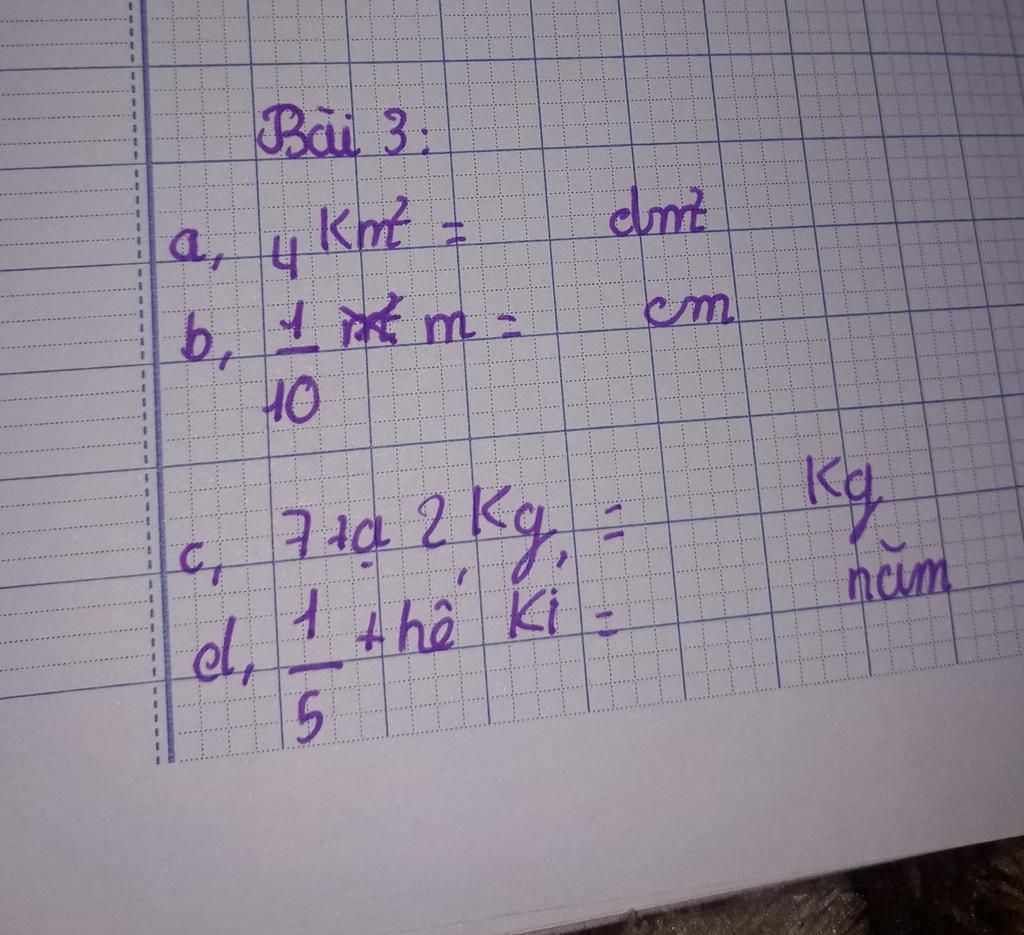 Bài 3:
a, 4 Km² = dm²
b, 1/10 m = cm
c, 7 tạ 2 Kg = Kg
d, 1/5 thế Kỉ = năm